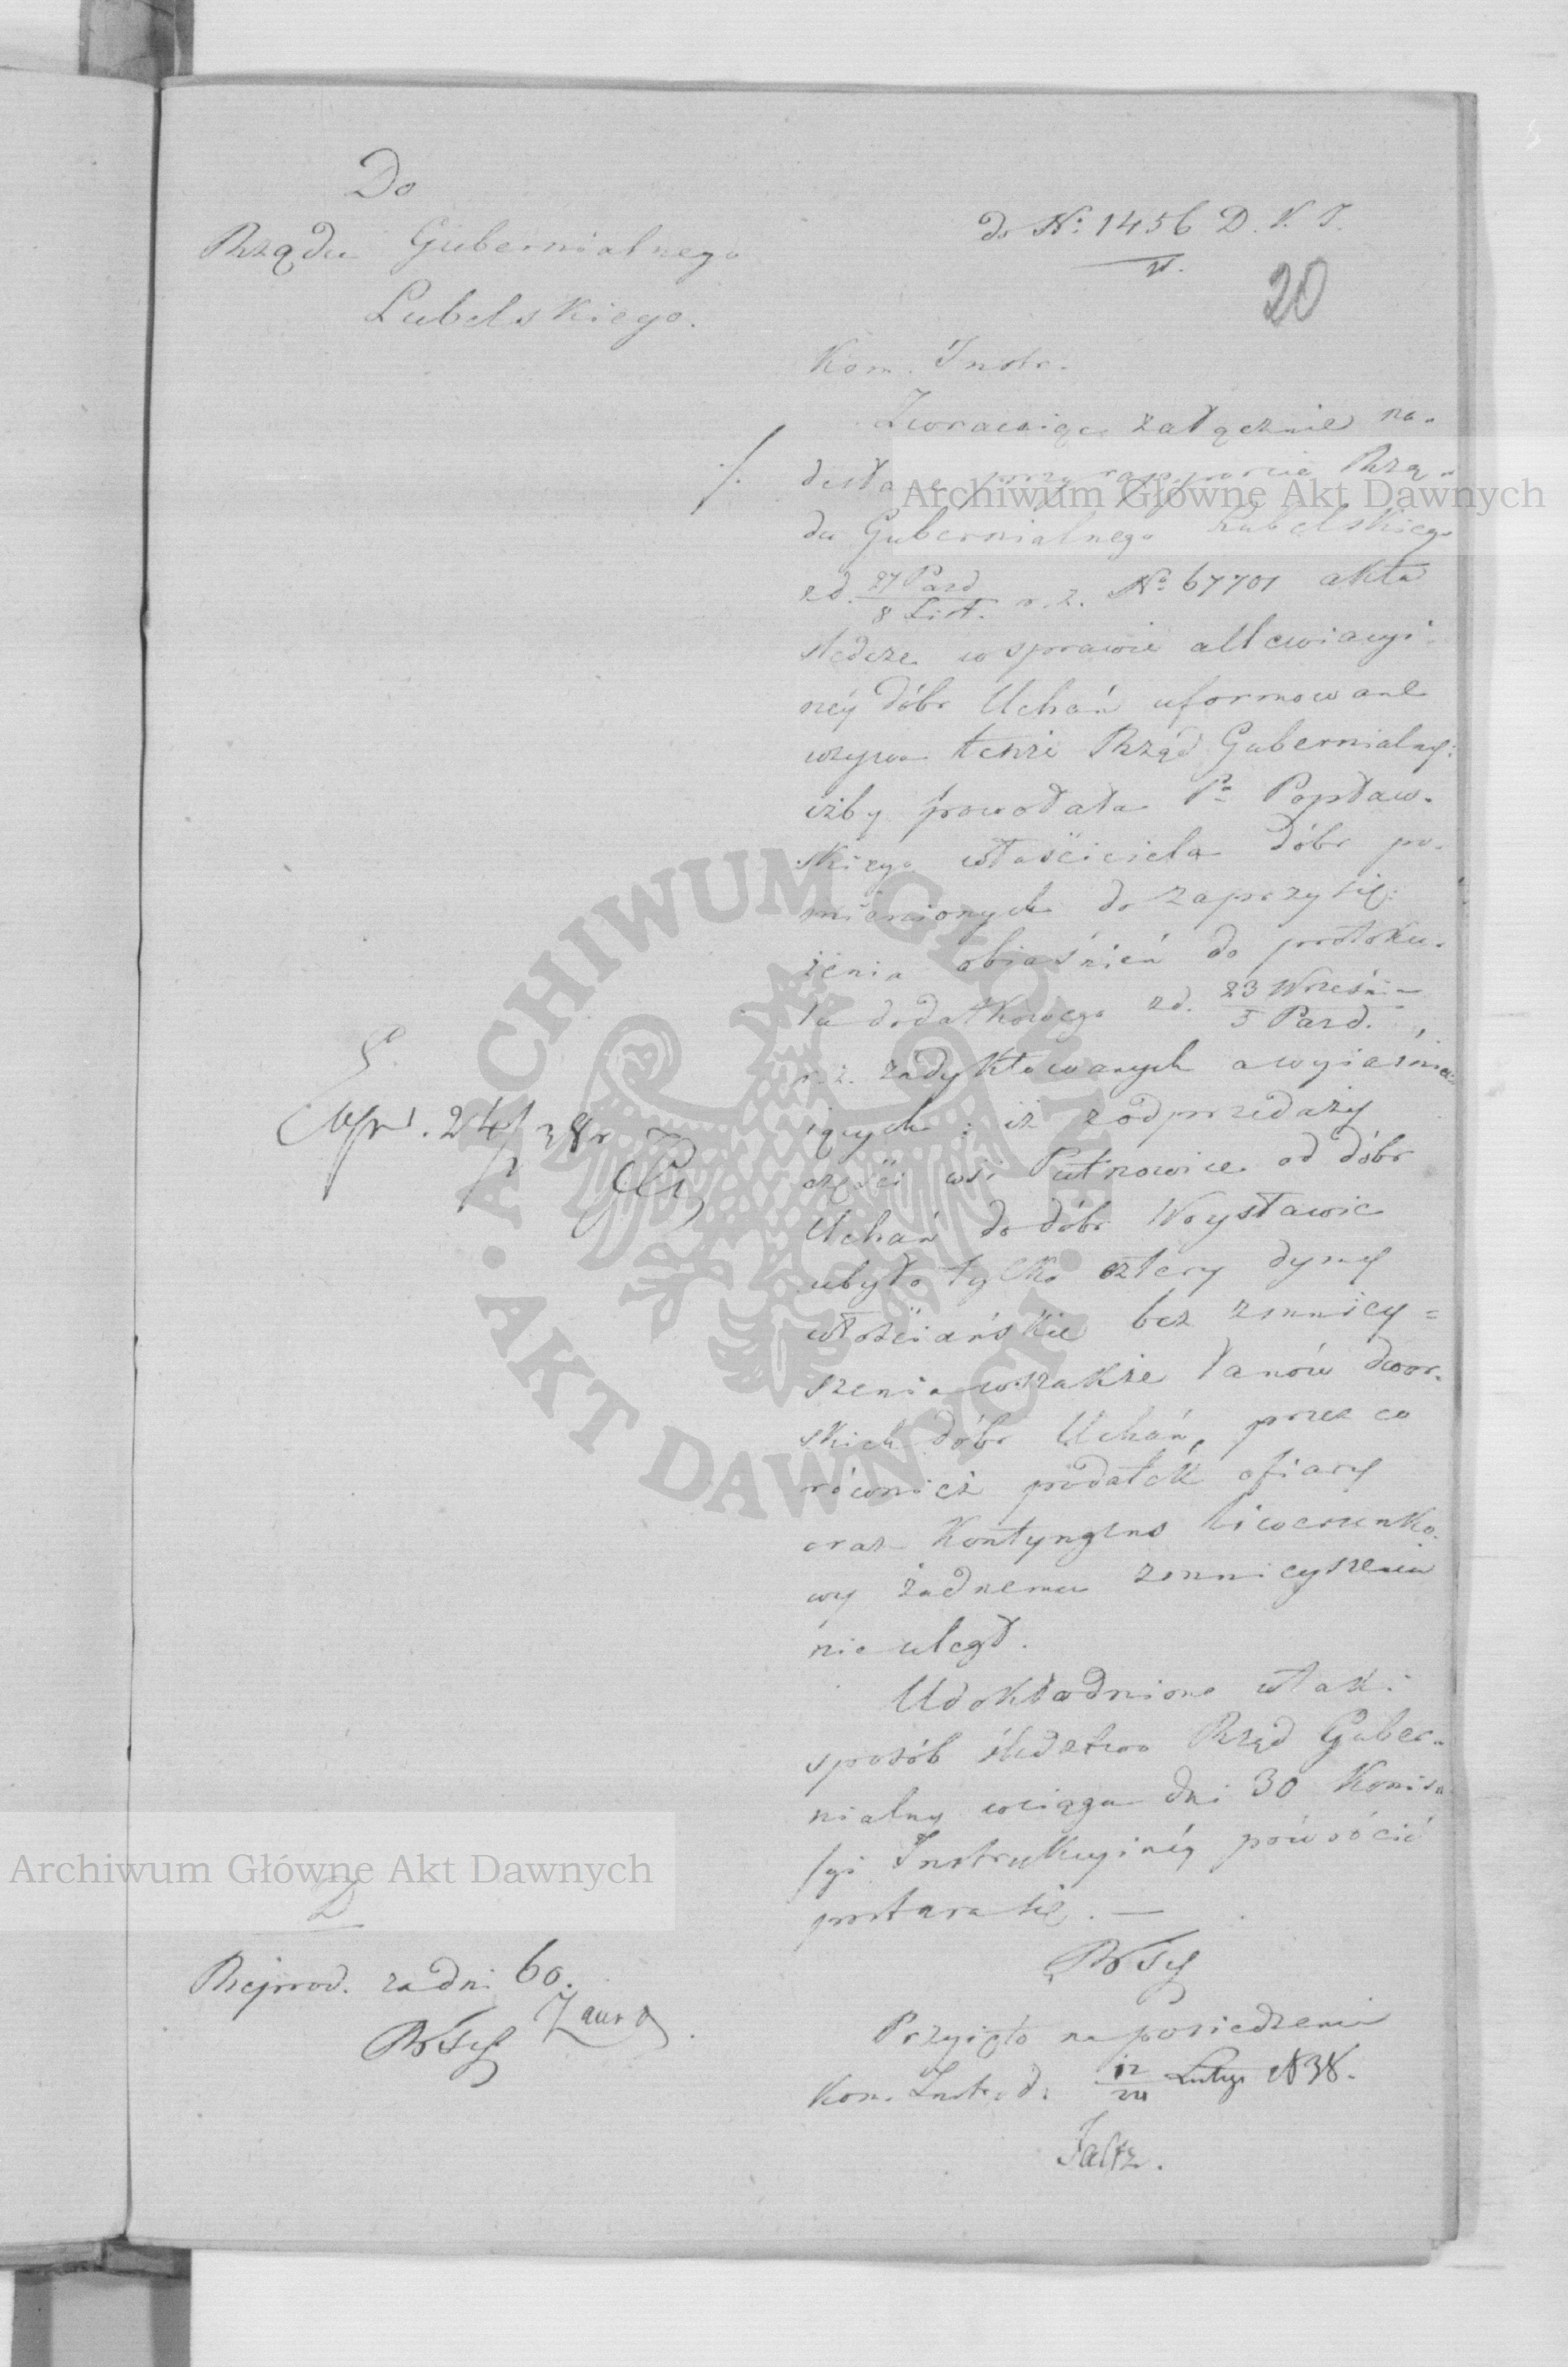 Do
Rządu Gubernialnego
Lubelskiego.
do Nº 1456 D. K. I.
20
Kom. Instr.
Zwracaiąc załącznie na-
desłane przy rapporcie Rzą-
du Gubernialnego Lubelskiego
z d. 27 Pazd / 8 List. r. z. Nº 67701 akta
śledcze w sprawie allewiacyi
néy dóbr Uchań uformowane
wzywa tenże Rząd Gubernialny:
iżby powołała Pª Popław-
skiego właściciela dóbr po-
mienionych do zaprzysię-
żenia obiaśnień do protoku-
łu dodatkowego z d. 23 Września / 5 Pazd.,
r. z. zadyktowanych a wyiaśnia-
iących: iż z odprzedaży
części wsi Putnowice od dóbr
Uchań do dóbr Woysławic
ubyło tylko cztery dymy
włościańskie bez zmniey=
szenia wszakże łanów dwor-
skich dóbr Uchań, przez co
również podatek ofiary
oraz Kontyngens liwerunko-
wy żadnemu zmnieyszeniu
nie uległ.
Udokładnione w taki
sposób śledztwo Rząd Guber-
nialny wciągu dni 30 Komis-
syi Instrukcyinéy powrócić
postara się. —
Przyięto na posiedzeniu
Kom. Instr. d. 12/24 Lutego 1838.
Faltz.
Archiwum Główne Akt Dawnych
ARCHIWUM GŁÓWNE
AKT DAWNYCH
Exp. 24/2 38 r
Archiwum Główne Akt Dawnych
D
Reprod. za dni 60.